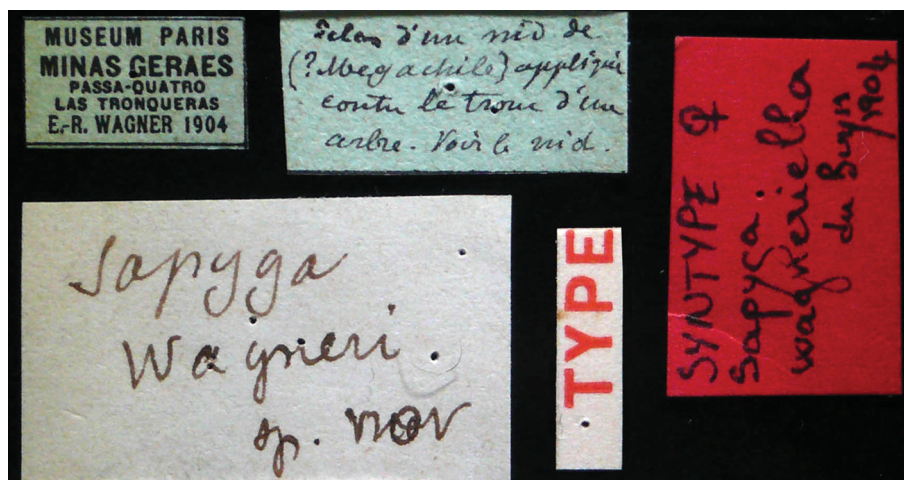 MUSEUM PARIS
MINAS GERAES
PASSA-QUATRO
LAS TRONQUERAS
E.-R. WAGNER 1904
d'un nid de
(? Megachile) appliqué
contre le tronc d'un
arbre. Voir le nid.
Sapyga
Wagneri
sp. nov
TYPE
SYNTYPE ♀
Sapyga
wagneriella
du Buyss
1904